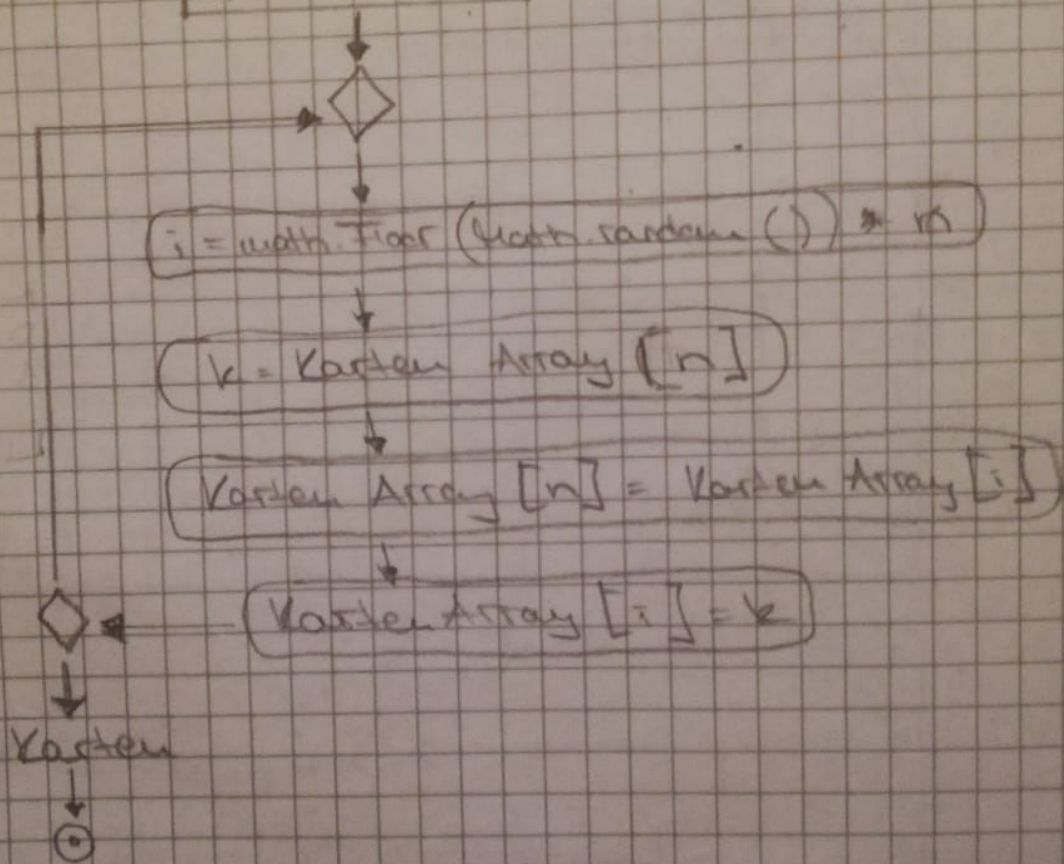 i = math.Floor (Math.random ()) * n
k = Karten Array [n]
Karten Array [n] = Karten Array [i]
Karten Array [i] = k
Karten